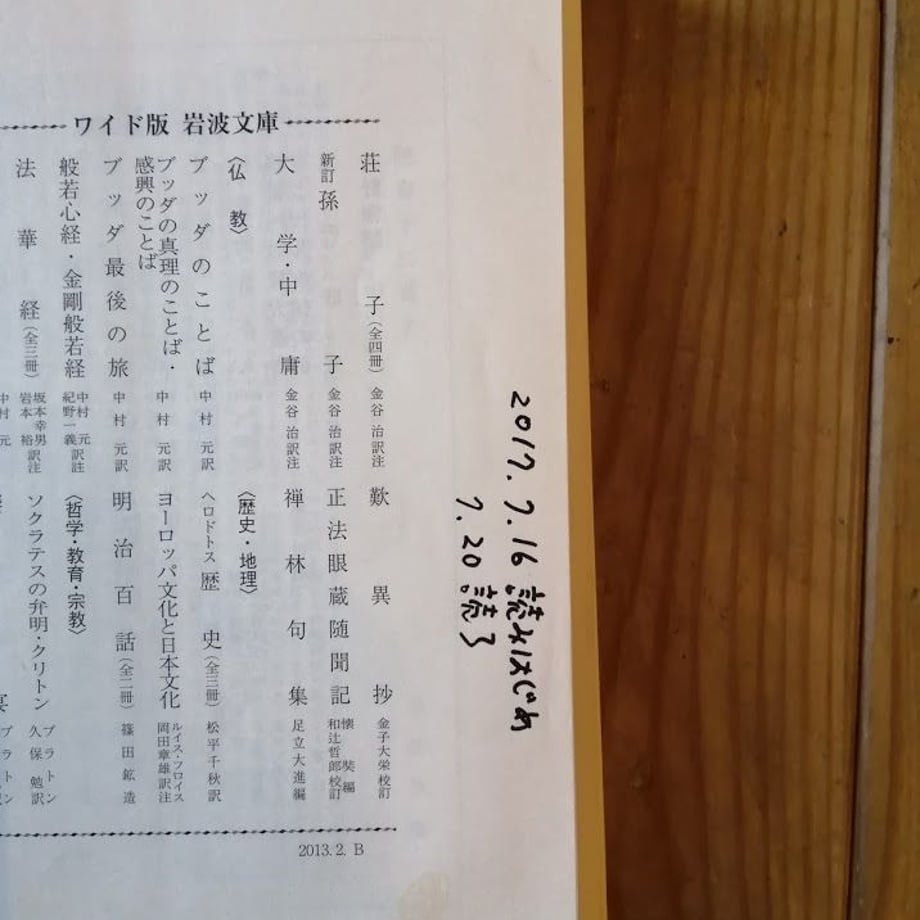 ワイド版 岩波文庫
荘子(全四冊) 金谷治訳注
新訂 孫子 金谷治訳注
大学・中庸 金谷治訳注
〈仏教〉
ブッダのことば 中村元訳
ブッダの真理のことば・
感興のことば 中村元訳
ブッダ最後の旅 中村元訳
般若心経・金剛般若経 中村元 紀野一義訳註
法華経(全三冊) 坂本幸男 岩本裕訳注
中村元
歎異抄 金子大栄校訂
正法眼蔵随聞記 懐奘編 和辻哲郎校訂
禅林句集 足立大進編
〈歴史・地理〉
ヘロドトス 歴史(全三冊) 松平千秋訳
ヨーロッパ文化と日本文化 ルイス・フロイス 岡田章雄訳注
明治百話(全二冊) 篠田鉱造
〈哲学・教育・宗教〉
ソクラテスの弁明・クリトン プラトン 久保勉訳
プラトン
2013.2. B
2017.7.16 読みはじめ
7.20 読了